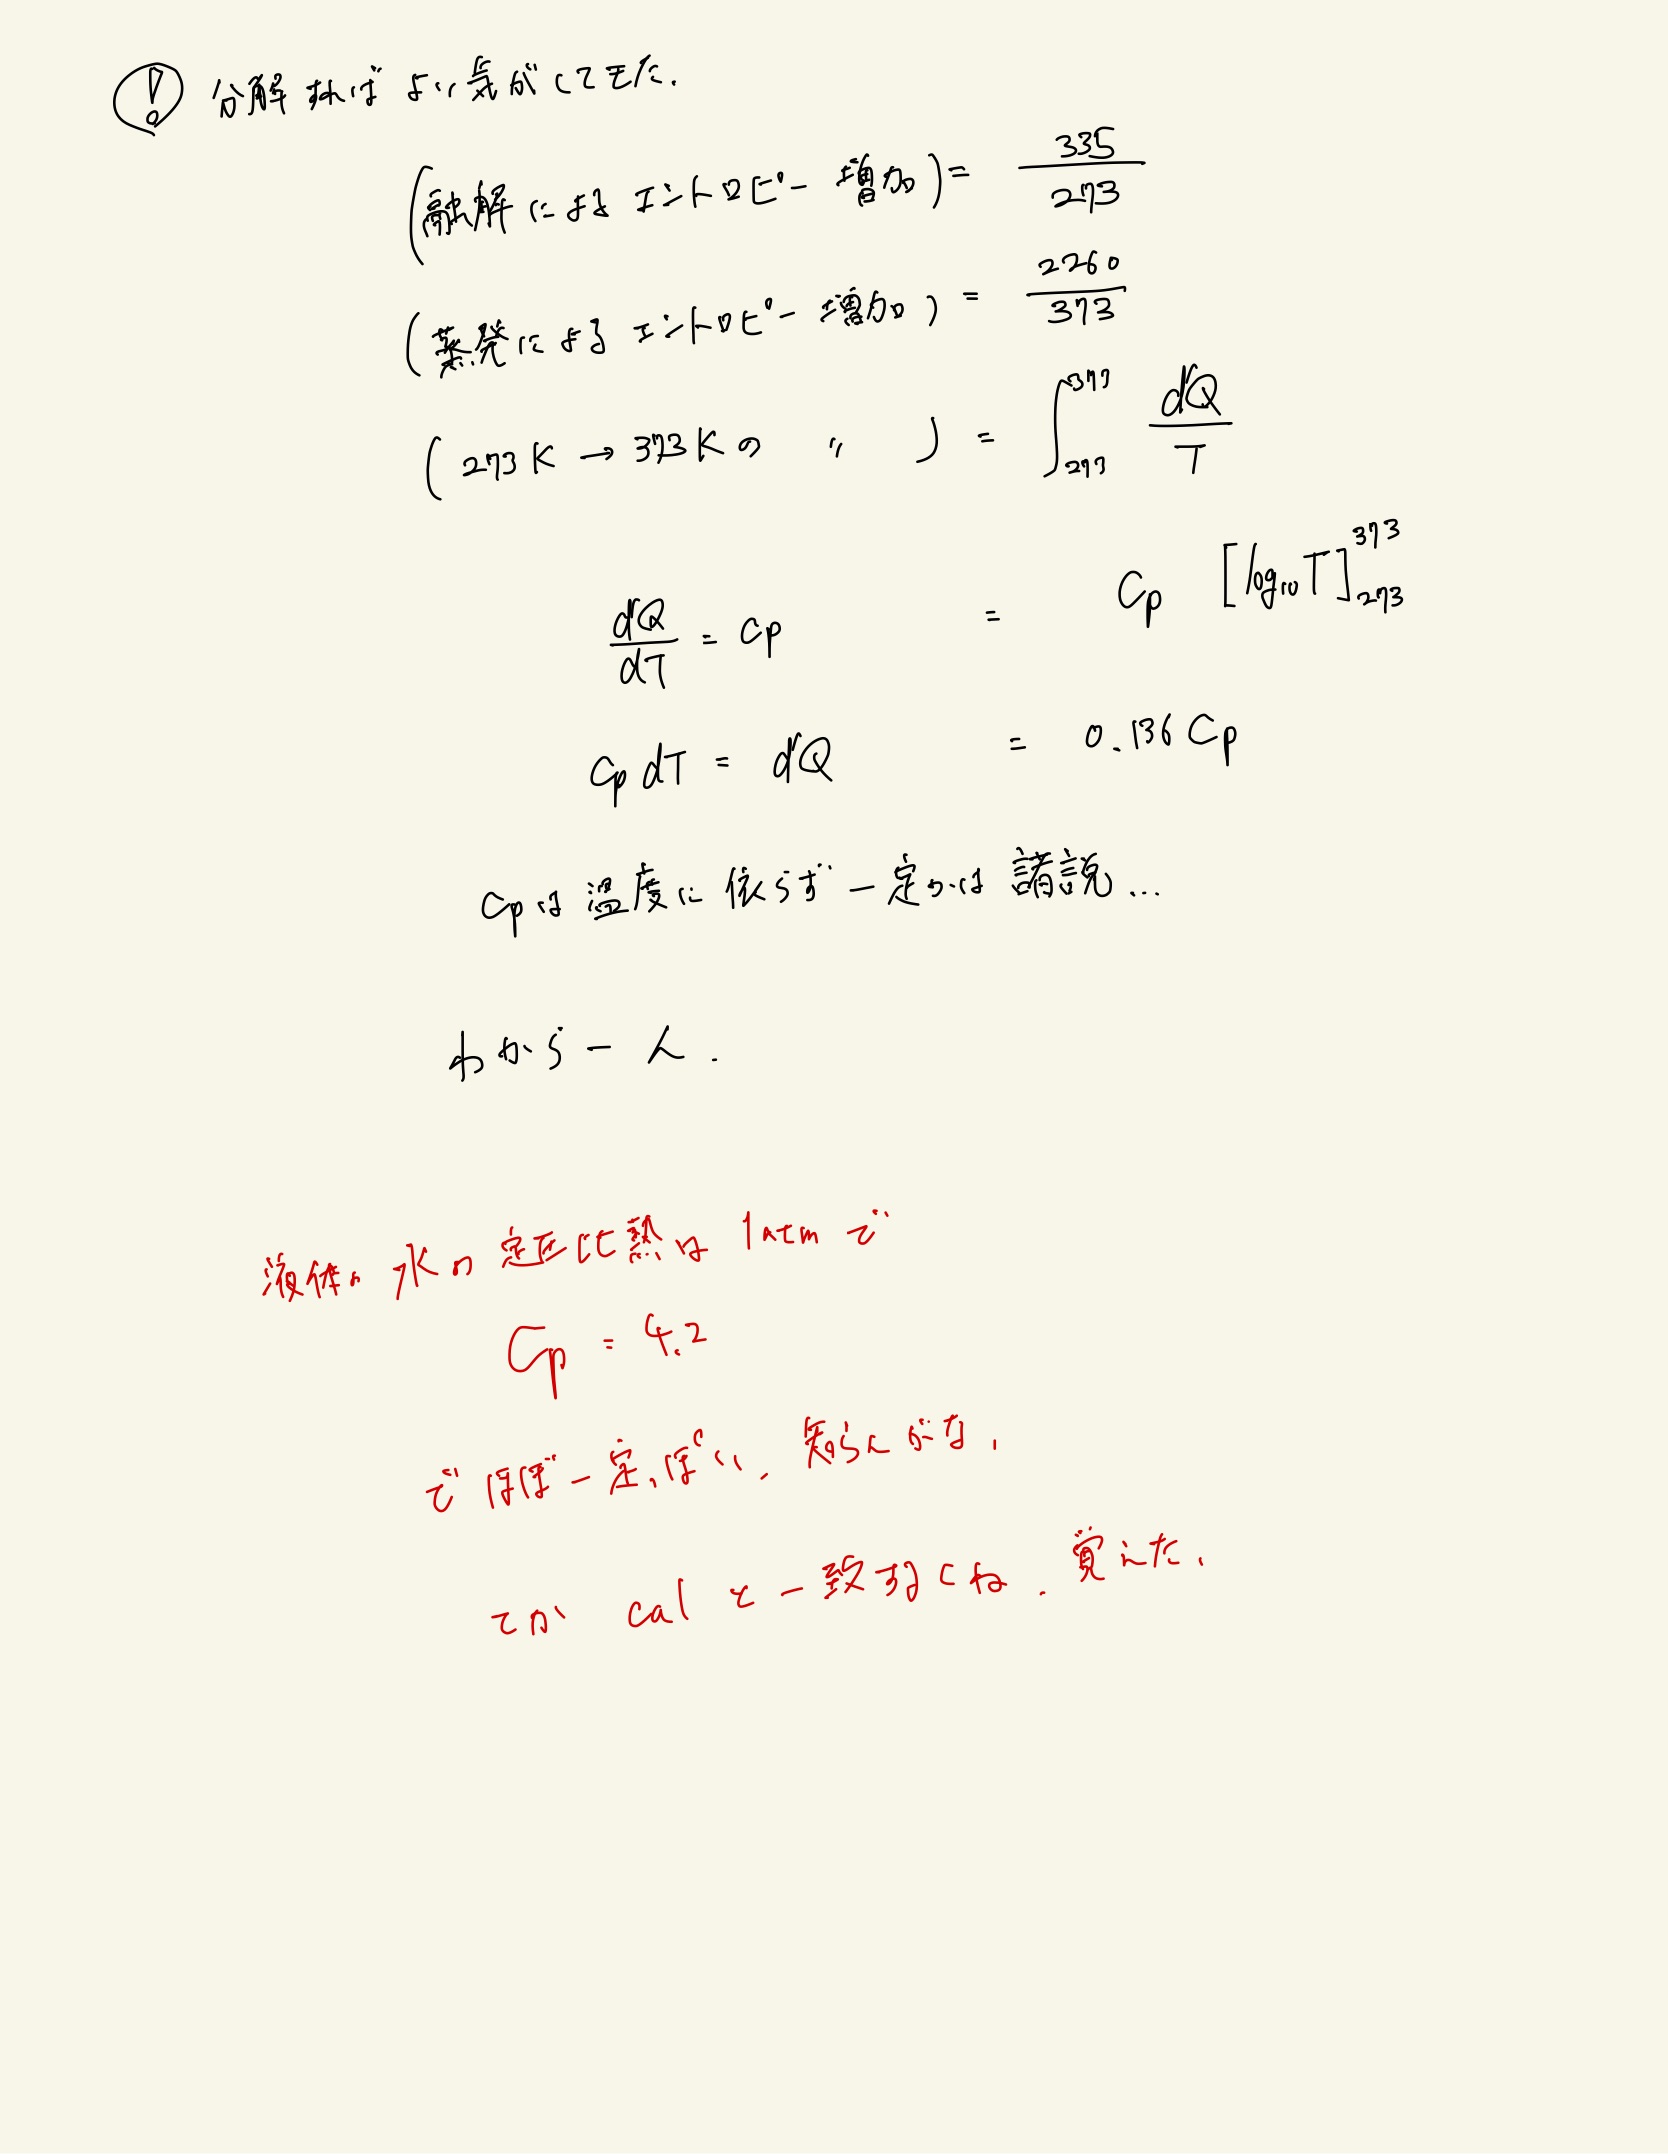 ! 分解すればよい気がしてきた.
(融解によるエントロピー増加) = 335/273
(蒸発によるエントロピー増加) = 2260/373
(273K → 373Kの 〃 ) = ∫_273^373 d'Q/T
d'Q/dT = Cp = Cp [log₁₀T]_273^373
Cp dT = d'Q = 0.136 Cp
Cpは温度に依らず一定かは諸説...
わからーん.
液体の水の定圧比熱は 1atm で
Cp = 4.2
でほぼ一定っぽい. 知らんがな.
てか cal と一致するくね. 覚えた.